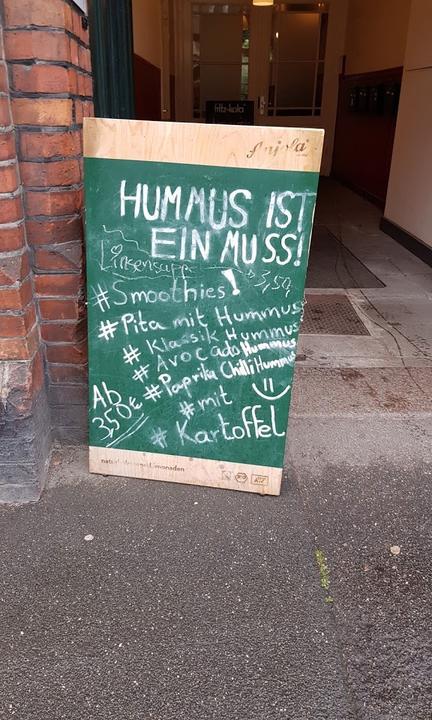 fritz-kola
Anjola
HUMMUS IST
EIN MUSS!
Linsensuppe 3,50
#Smoothies!
#Pita mit Hummus
# Klassik Hummus
# AVOCado Hummus
#Paprika Chilli Hummus
#mit
# Kartoffel
Ab
350€
Limonaden